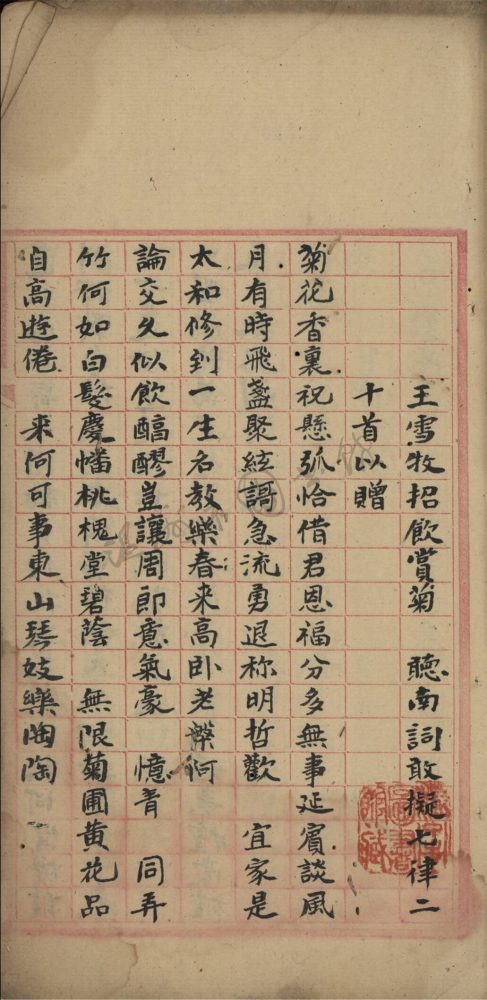 王雪牧招飲賞菊　聽南詞敢擬七律二
十首以贈
菊花香裏祝懸弧恰借君恩福分多無事延賓談風
月有時飛盞聚絃謌急流勇退称明哲歡　宜家是
太和修到一生名教樂春来高卧老槃何
論交久似飲醕醪豈讓周郎意氣豪　憶青　同弄
竹何如白髮慶幡桃槐堂碧蔭　無限菊圃黄花品
自高遊倦　来何可事東山琴妓樂陶陶